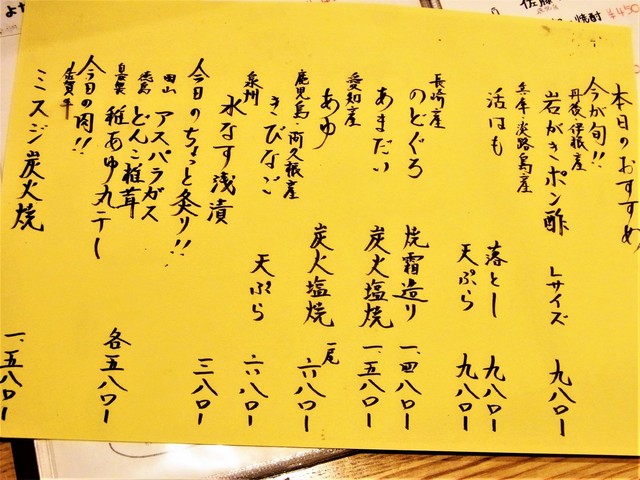 本日のおすすめ
今が旬!!
丹後・伊根産
岩がきポン酢 Lサイズ 九八〇ー
兵庫・淡路島産
活はも 落とし 九八〇ー
天ぷら 九八〇ー
長崎産
のどぐろ 焼霜造り 一、四八〇ー
あまだい 炭火塩焼 一、五八〇ー
愛知産
あゆ 炭火塩焼 一尾 六八〇ー
鹿児島・阿久根産
きびなご 天ぷら 六八〇ー
泉州
水なす浅漬 三八〇ー
今日のちょっと炙り!!
アスパラガス
徳島 どんこ椎茸
稚あゆ丸干し 各五八〇ー
今日の肉!!
佐賀牛
ミスジ炭火焼 一、五八〇ー
佐藤
焼酎 ¥450